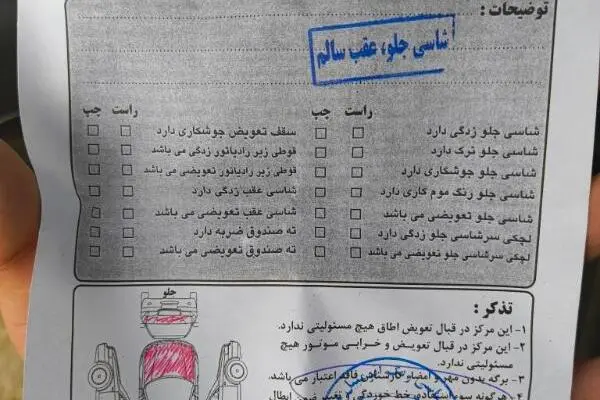 توضیحات :
شاسی جلو، عقب سالم
راست چپ
راست چپ
شاسی جلو زدگی دارد
شاسی جلو ترک دارد
شاسی جلو جوشکاری دارد
شاسی جلو رنگ موم کاری دارد
شاسی جلو تعویضی می باشد
لچکی سرشاسی جلو زدگی دارد
لچکی سرشاسی جلو تعویضی می باشد
سقف تعویض جوشکاری دارد
قوطی زیر رادیاتور زدگی می باشد
قوطی زیر رادیاتور تعویضی می باشد
شاسی عقب زدگی دارد
شاسی عقب تعویضی می باشد
ته صندوق ضربه دارد
ته صندوق تعویضی می باشد
تذکر :
۱- این مرکز در قبال تعویض اطاق هیچ مسئولیتی ندارد.
۲- این مرکز در قبال تعویض و خرابی موتور هیچ
مسئولیتی ندارد.
۳- برگه بدون مهر و امضاء کارشناس فاقد اعتبار می باشد.
۴- هرگونه سوء استفاده، خط خوردگی
جلو